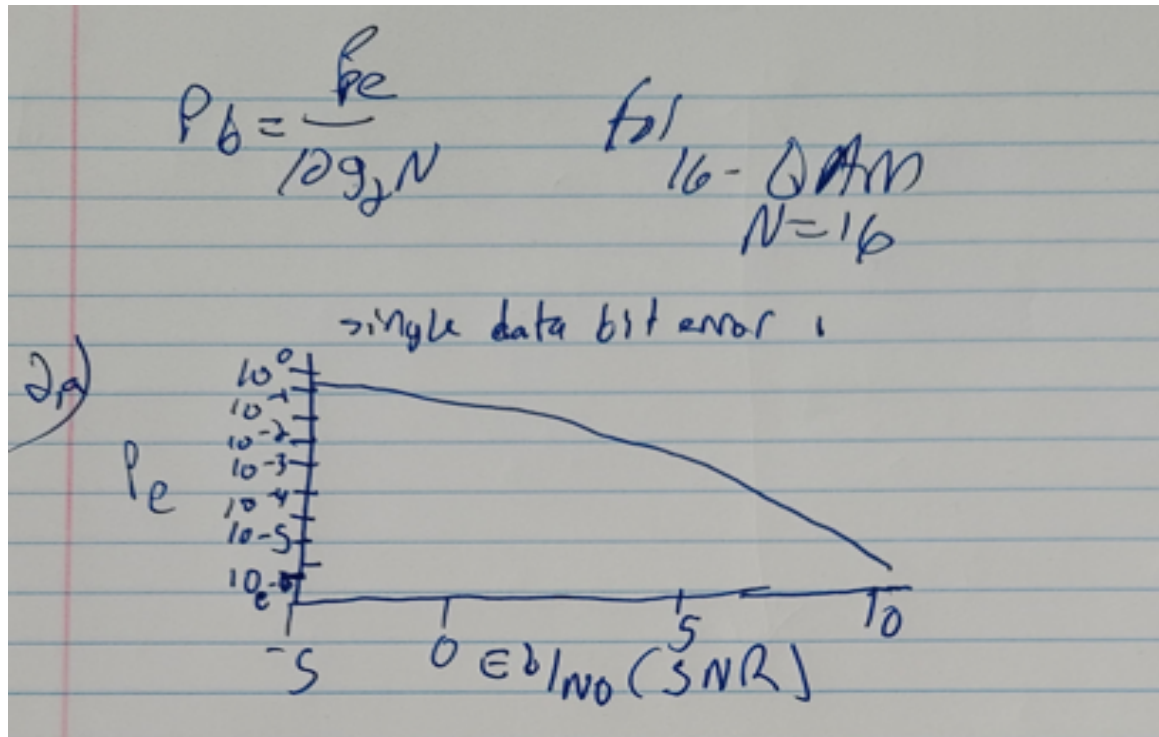 Pb = Pe / log2N
for
16-QAM
N=16
single data bit error
2,a)
Pe
10^0
10^-1
10^-2
10^-3
10^-4
10^-5
-5 0 5 10
Eb/No (SNR)